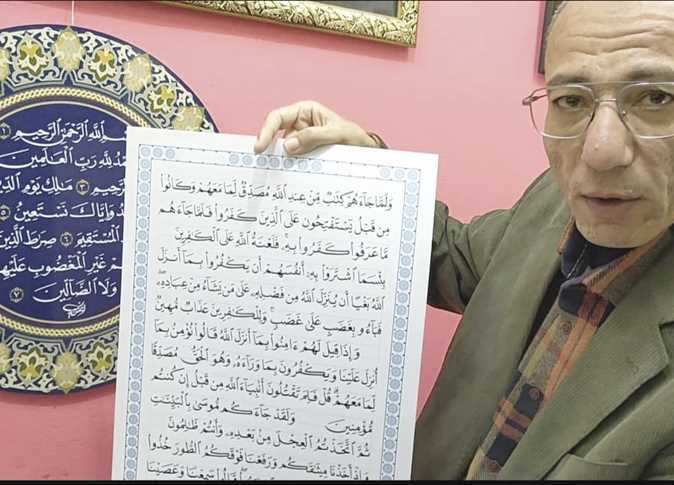 الله الرحمن الرحيم ١
لله رب العلمين
الرحيم ٣ ملك يوم الدين
وإياك نستعين ٥
المستقيم ٦ صرط الذين
غير المغضوب عليهم
ولا الضالين ٧
ولما جاءهم كتب من عند الله مصدق لما معهم وكانوا
من قبل يستفتحون على الذين كفروا فلما جاءهم
ما عرفوا كفروا به فلعنة الله على الكفرين
بئسما اشتروا به أنفسهم أن يكفروا بما أنزل
الله بغيا أن ينزل الله من فضله على من يشاء من عباده
فباءو بغضب على غضب وللكفرين عذاب مهين
وإذا قيل لهم ءامنوا بما أنزل الله قالوا نؤمن بما
أنزل علينا ويكفرون بما وراءه وهو الحق مصدقا
لما معهم قل فلم تقتلون أنبياء الله من قبل إن كنتم
مؤمنين ولقد جاءكم موسى بالبينت
ثم اتخذتم العجل من بعده وأنتم ظلمون
وإذ أخذنا ميثقكم ورفعنا فوقكم الطور خذوا
قالوا سمعنا وعصينا